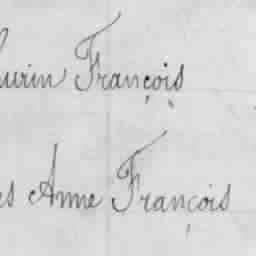 urin François
es Anne François